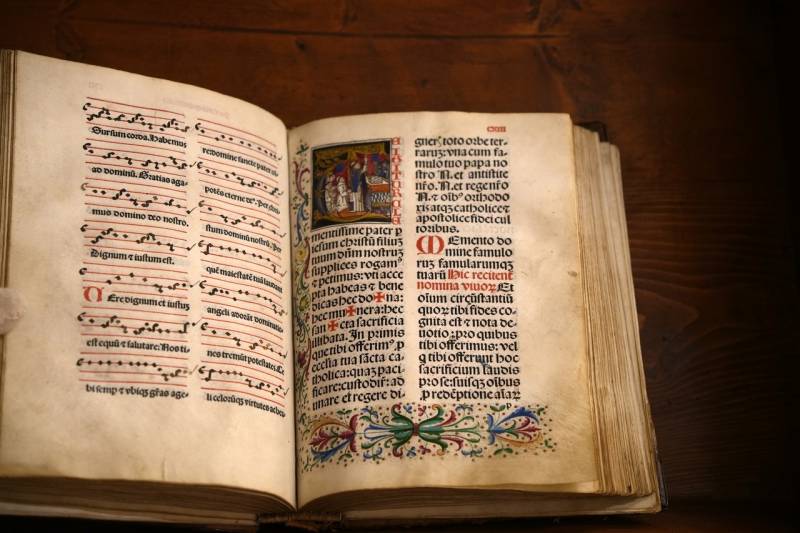 Sursum corda. Habemus
ad dominū. Gratias aga-
mus domino deo nostro.
Dignum ⁊ iustum est.
Ere dignum et iustuʒ
est equū ⁊ salutare: Nos ti-
bi semp ⁊ vbiqʒ grās age-
re: domine sancte pater
potēs eterne deꝰ. Per
stum dominū nostrū. Per
quē maiestatē tuā laudant
angeli adorāt dominatio-
nes tremūt potestates. Ce-
li celorūqʒ virtutes ac be
cxiii
TE IGITUR CLE
mentissime pater p
iesum christū filiuʒ
tuum dn̄m nostruʒ
supplices rogamꝰ
⁊ petimus: vti acce
pta habeas ⁊ bene
dicas hec do✠na:
hec mu✠nera: hec
san✠cta sacrificia
illibata. In primis
que tibi offerimꝰ p
ecclesia tua sācta ca-
tholica: quaʒ paci-
ficare: custodiꝛ̄: ad
unare et regere di-
gneriʒ toto orbe ter-
raruʒ: vna cum fa-
mulo tuo papa no
stro N. et antistite
nr̄o. N. et rege nr̄o
N. ⁊ oībꝰ orthodo
xis atqʒ catholice ⁊
apostolice fidei cul
toribus.
MEmento do
mine famulo
ruʒ famularumqʒ
tuarū Hic recitent
nomina viuoꝝ. Et
oīum circūstantiū
quoꝝ tibi fides co-
gnita est ⁊ nota de-
uotio: pro quibus
tibi offerimus: vel
q̄ tibi offerunt hoc
sacrificium laudis
pro se: suisqʒ oībus
p redēptione aīaꝝ